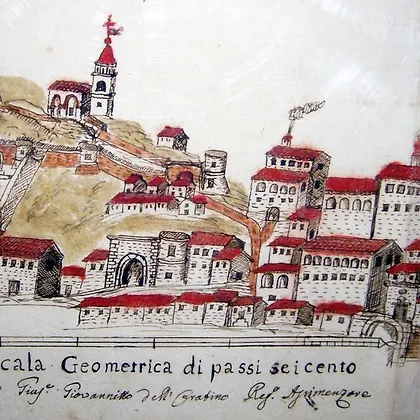 cala Geometrica di passi seicento
Giovannitto dell' Gratino Reg. Agrimensore